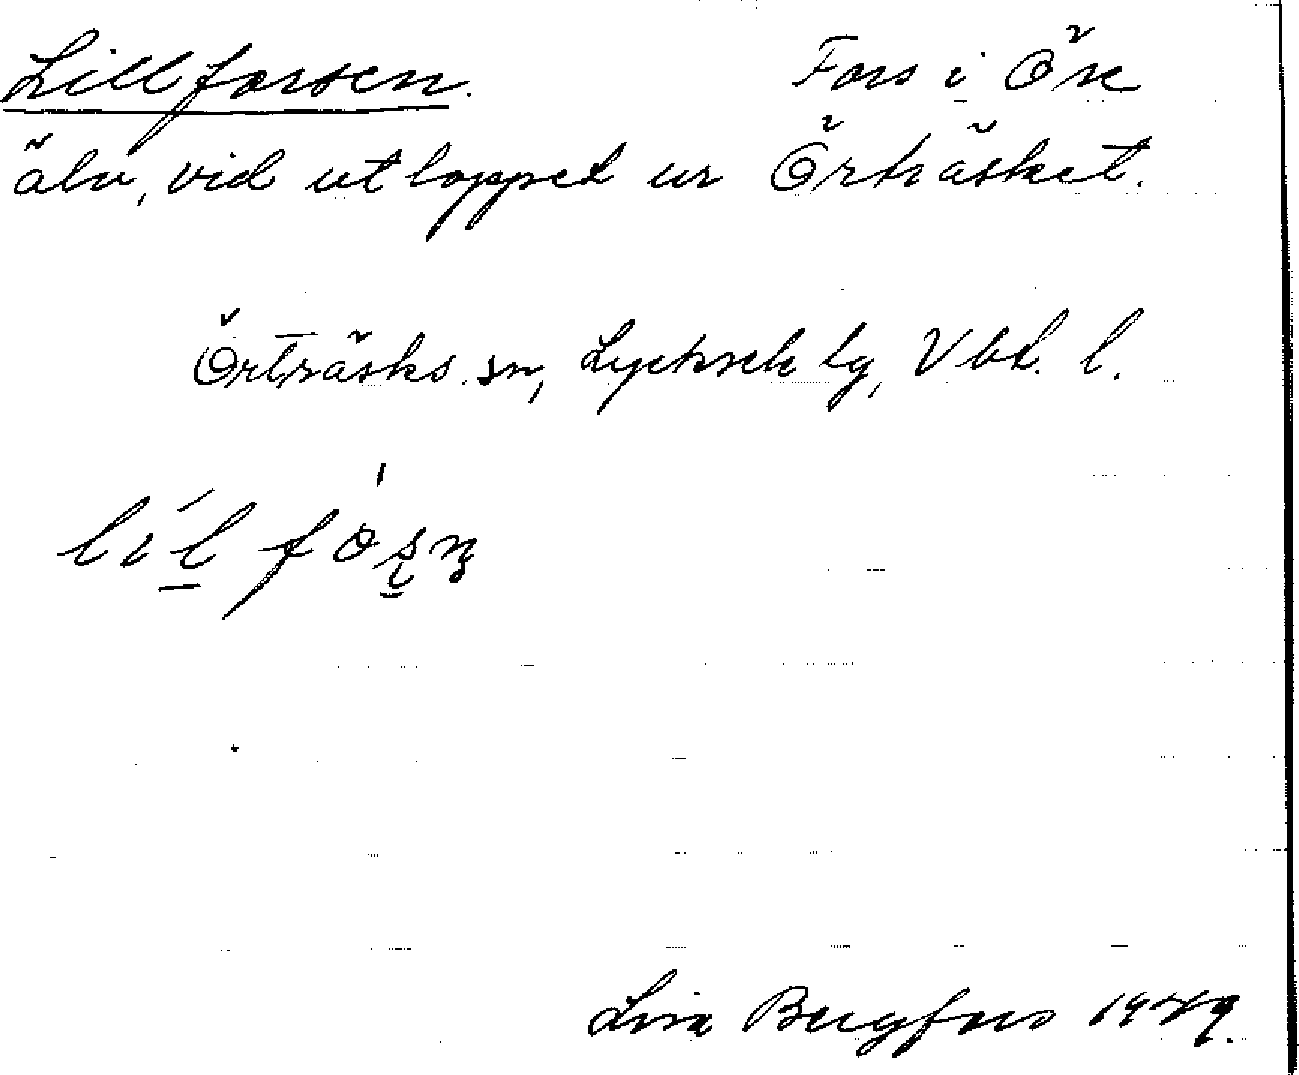 Lillforsen. Fors i Öre
älv, vid utloppet ur Örträsket.
Örträsks sn, Lycksele lg, Vbl. l.
Lisa Bergfors 1949.